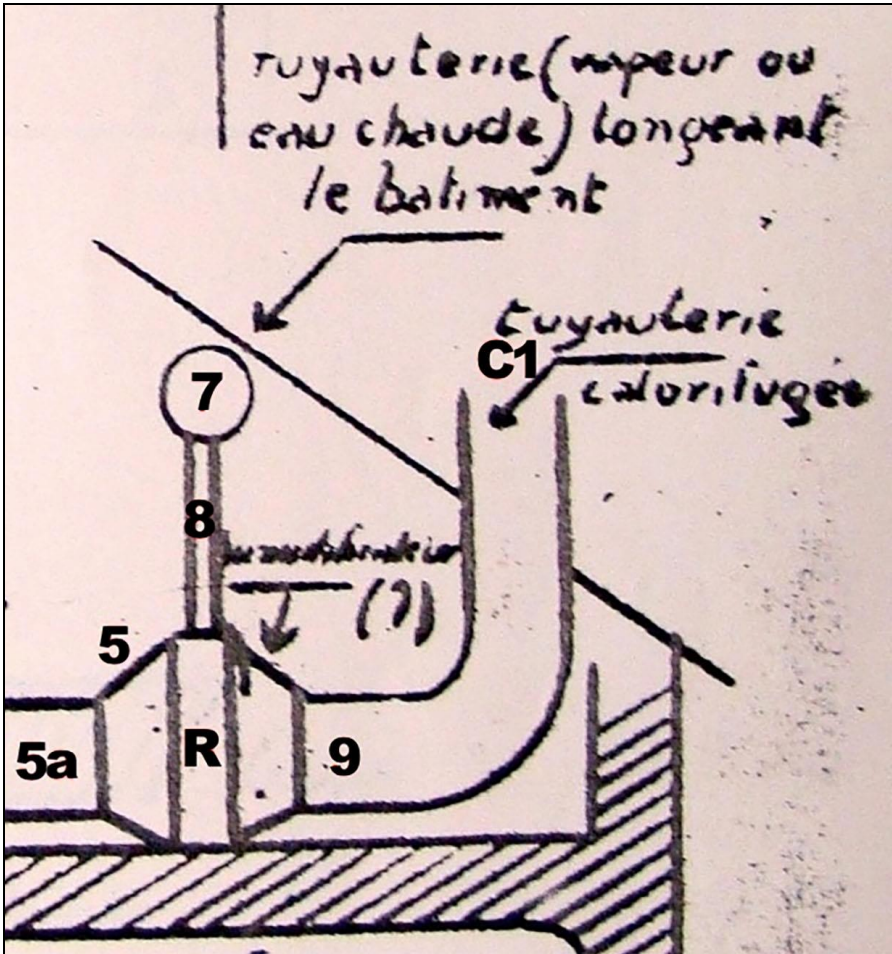 tuyauterie (vapeur ou
eau chaude) longeant
le batiment
tuyauterie
C1
calorifugée
7
8
(?)
5
5a
R
9